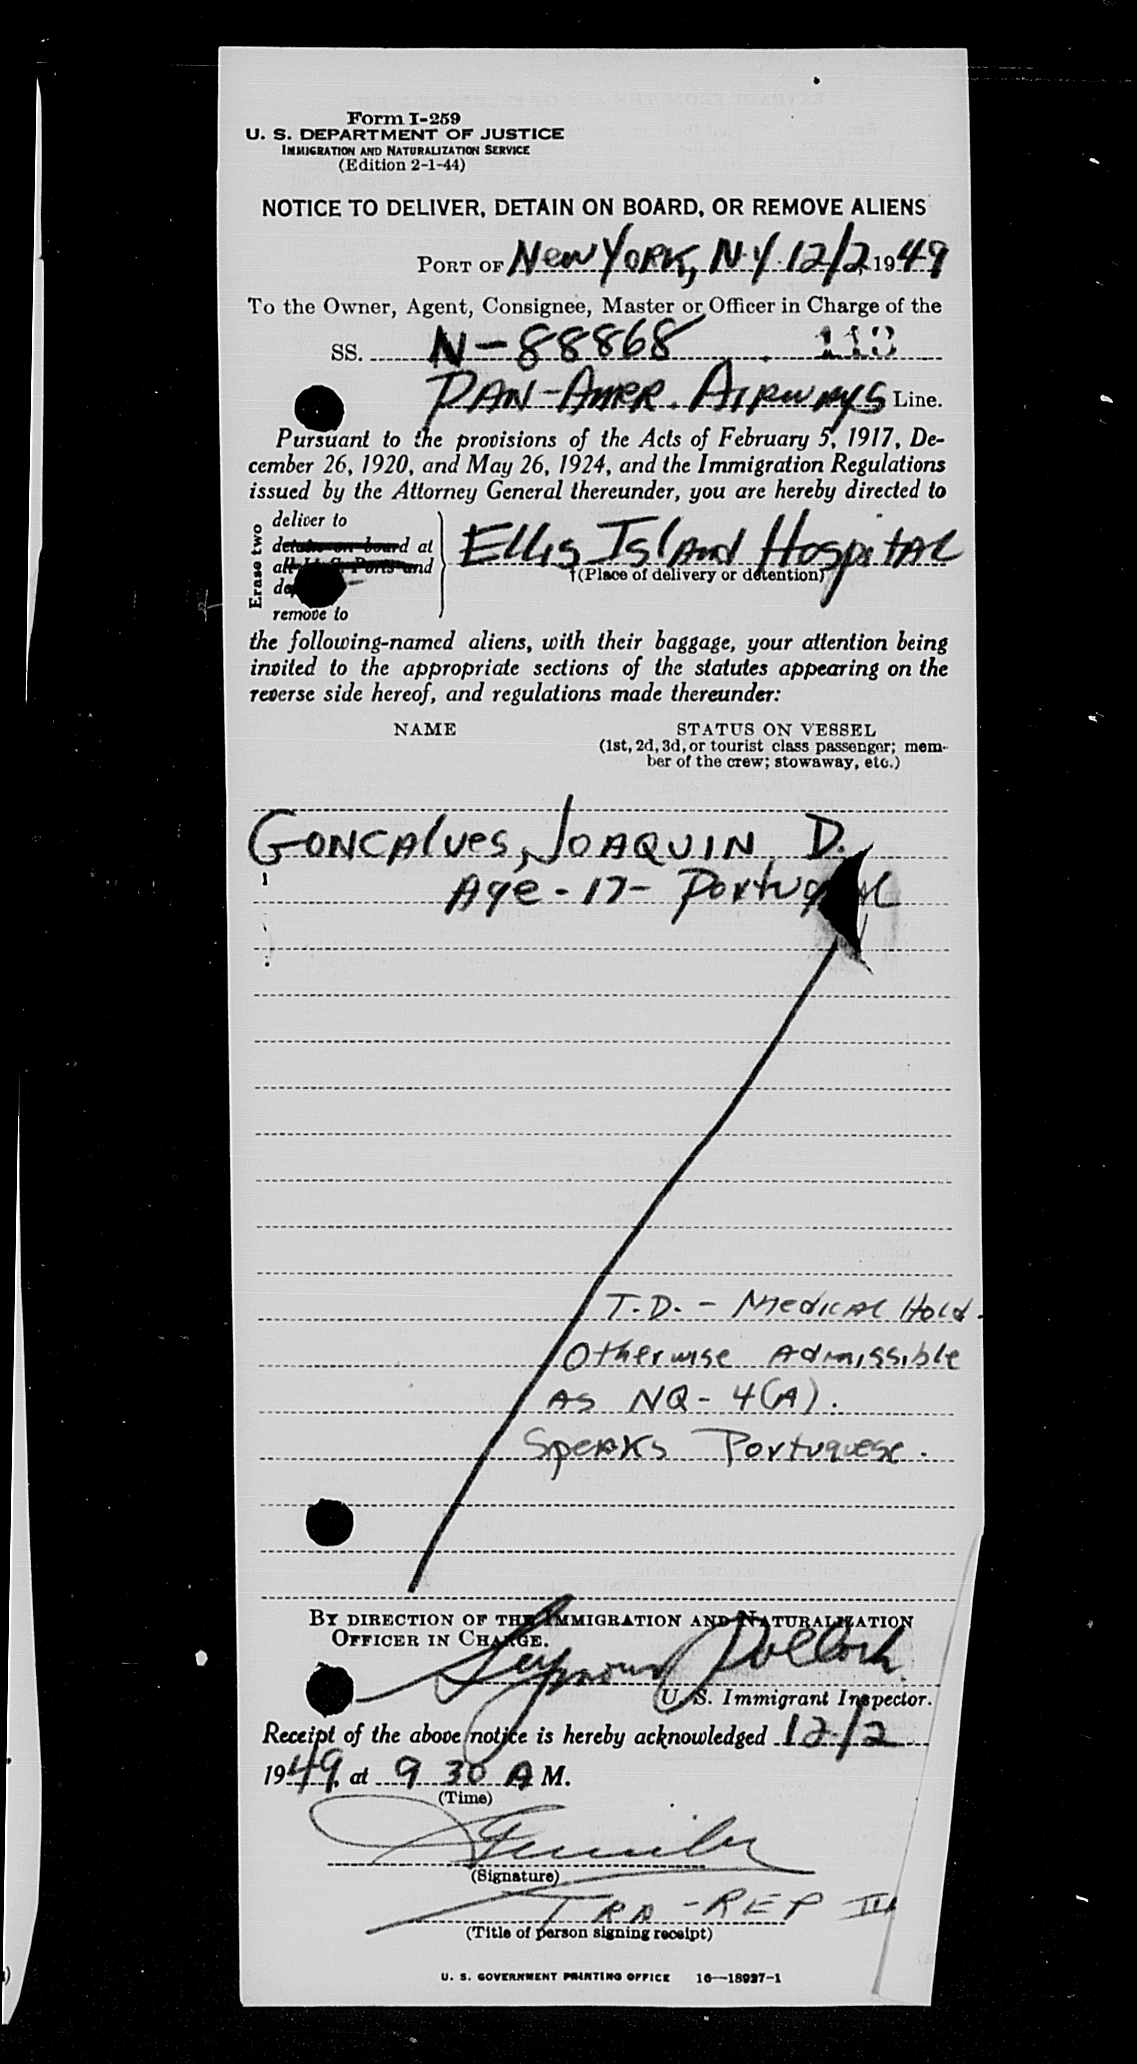 Form I-259
U. S. DEPARTMENT OF JUSTICE
IMMIGRATION AND NATURALIZATION SERVICE
(Edition 2-1-44)
NOTICE TO DELIVER, DETAIN ON BOARD, OR REMOVE ALIENS
PORT OF New York, N.Y. 12/2, 1949
To the Owner, Agent, Consignee, Master or Officer in Charge of the
SS. N-88868 113
PAN-AMER. AIRWAYS Line.
Pursuant to the provisions of the Acts of February 5, 1917, De-
cember 26, 1920, and May 26, 1924, and the Immigration Regulations
issued by the Attorney General thereunder, you are hereby directed to
Erase two
deliver to
detain on board at
all U. S. Ports and
remove to
Ellis Island Hospital
†(Place of delivery or detention)
the following-named aliens, with their baggage, your attention being
invited to the appropriate sections of the statutes appearing on the
reverse side hereof, and regulations made thereunder:
NAME STATUS ON VESSEL
(1st, 2d, 3d, or tourist class passenger; mem-
ber of the crew; stowaway, etc.)
GONCALVES, JOAQUIN D.
Age - 17 - Portugal
T.D. - Medical Hold.
Otherwise Admissible
AS NQ - 4(A).
Speaks Portuguese.
BY DIRECTION OF THE IMMIGRATION AND NATURALIZATION
OFFICER IN CHARGE.
Seymour Pollock
U. S. Immigrant Inspector.
Receipt of the above notice is hereby acknowledged 12/2
1949, at 9 30 A M.
(Time)
(Signature)
TRA-REP III
(Title of person signing receipt)
U. S. GOVERNMENT PRINTING OFFICE 16—18937-1